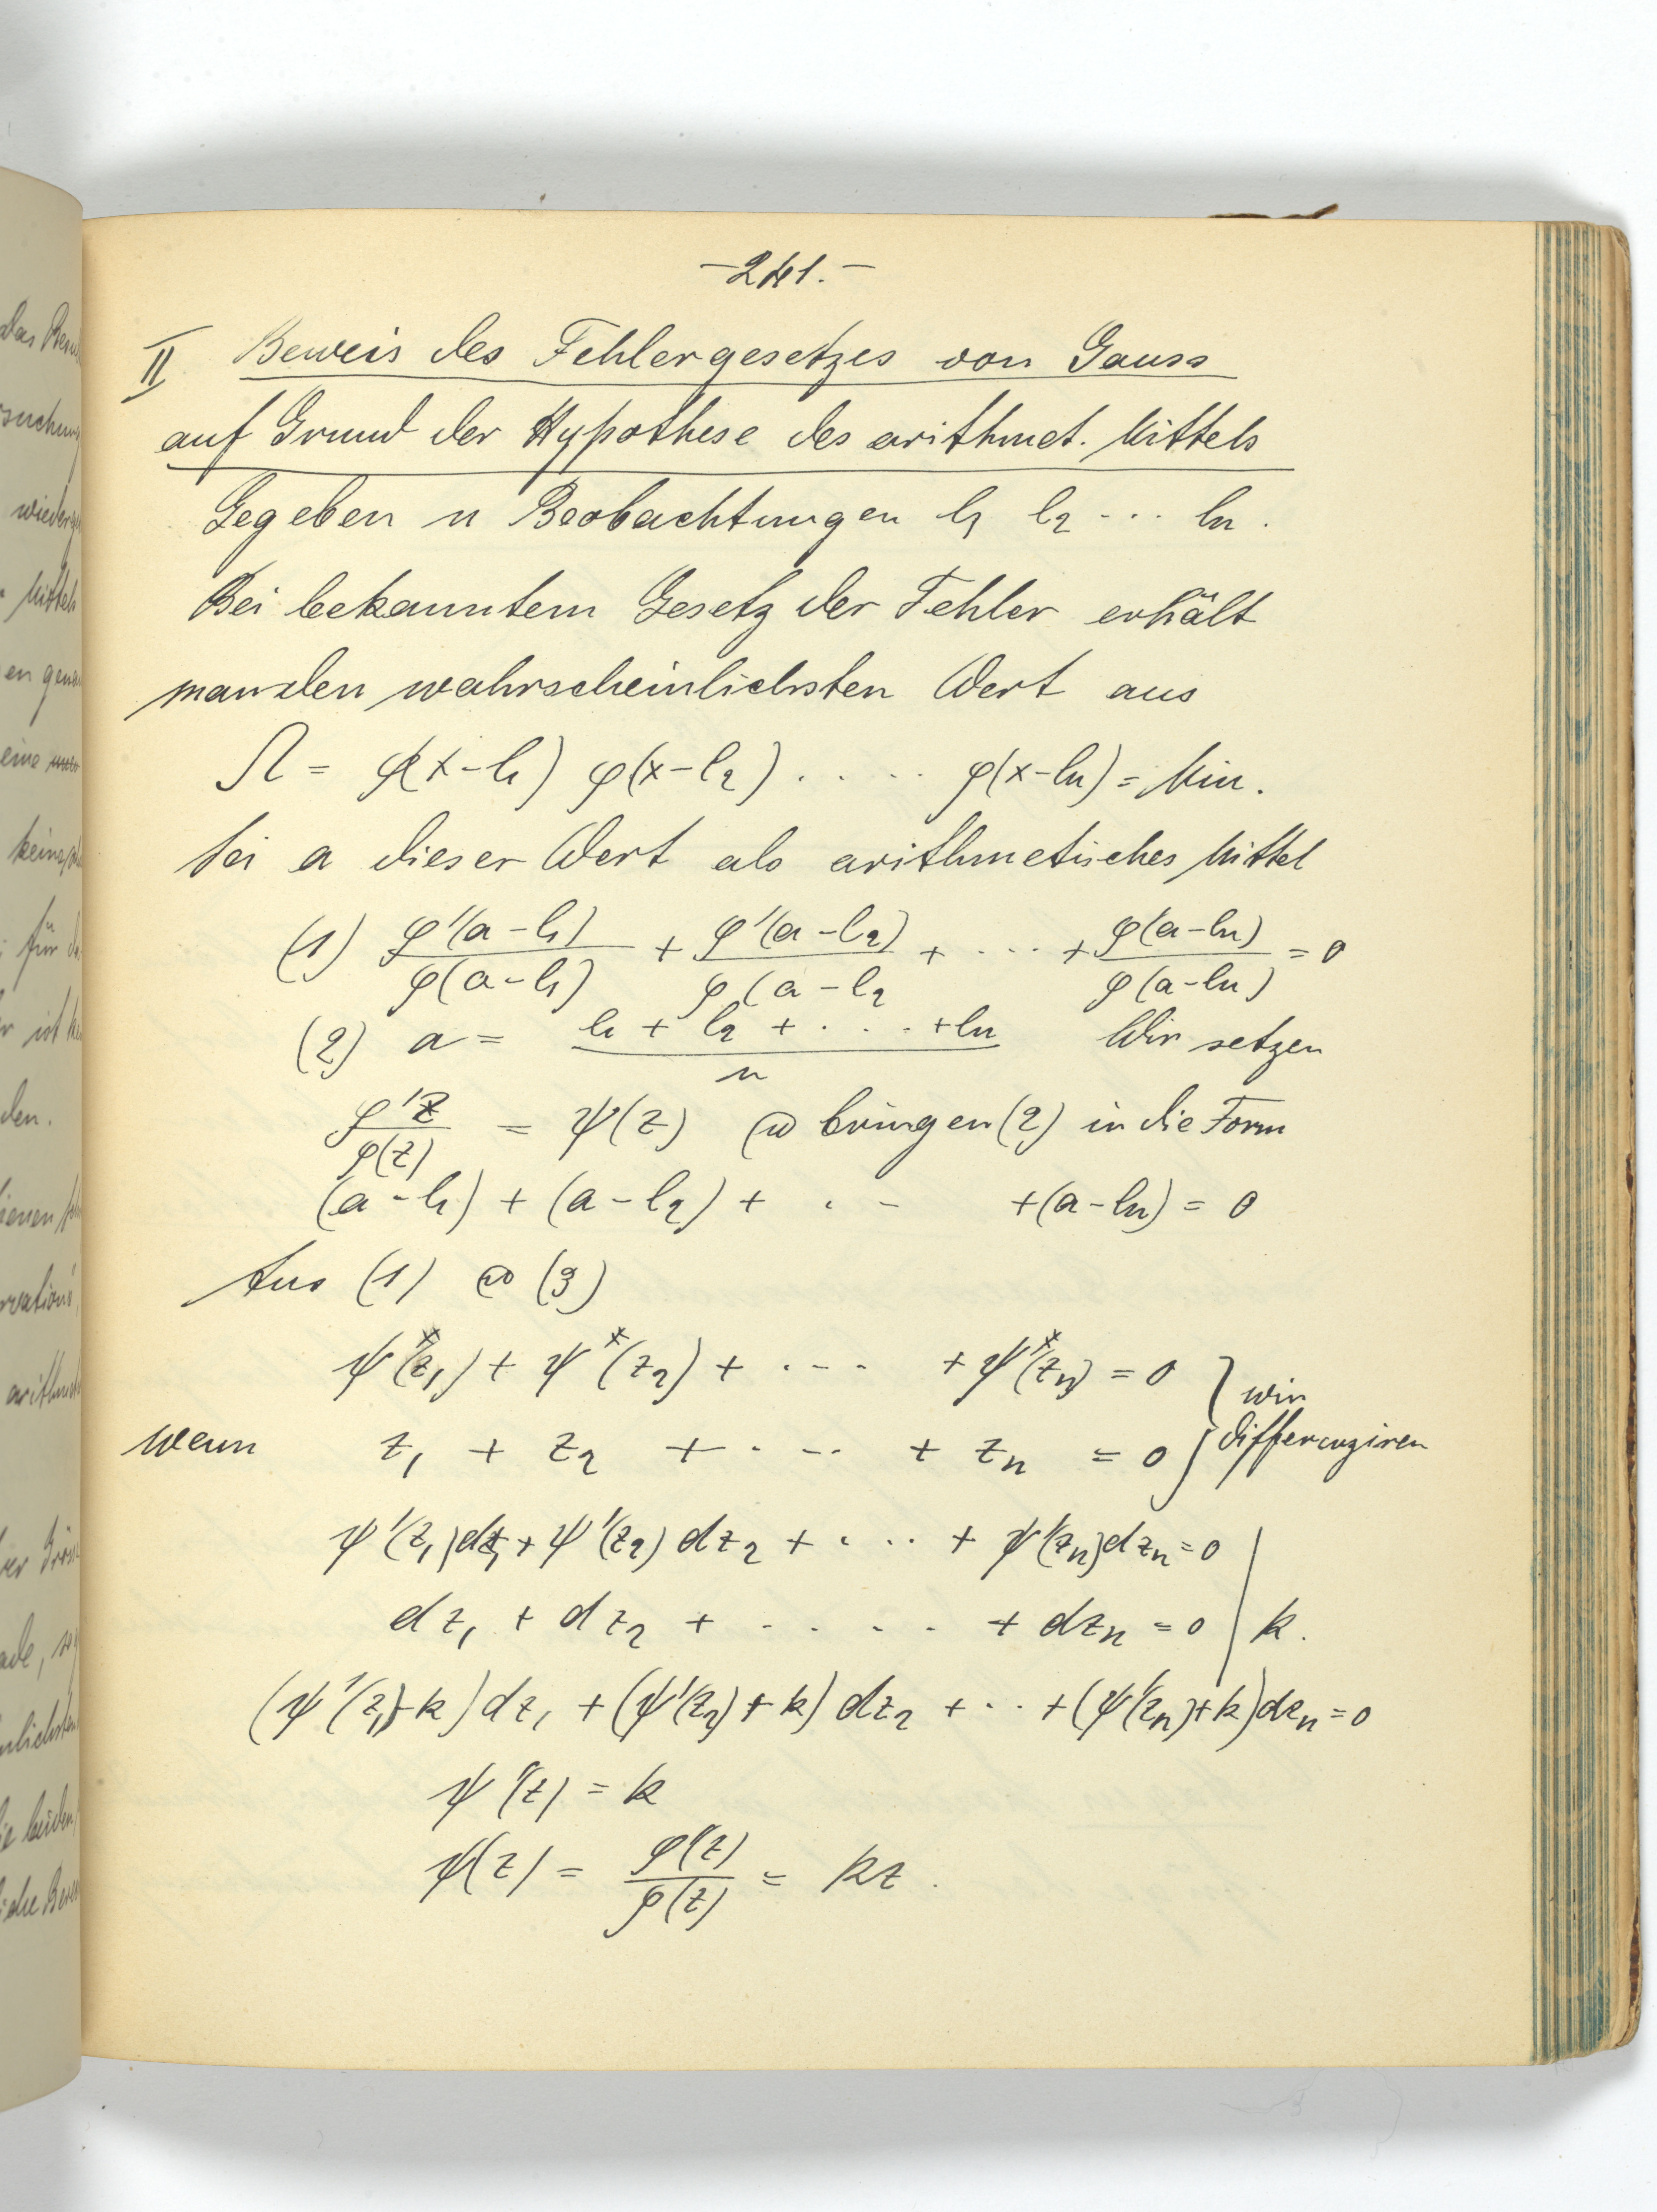 -241.-
II Beweis des Fehlergesetzes von Gauss
auf Grund der Hypothese des arithmet. Mittels
Gegeben n Beobachtungen l1 l2 ... ln.
Bei bekanntem Gesetz der Fehler erhält
man den wahrscheinlichsten Wert aus
Ω = φ(x-l1) φ(x-l2) ..... φ(x-ln) = Min.
Sei a dieser Wert als arithmetisches Mittel
(1) φ'(a-l1)/φ(a-l1) + φ'(a-l2)/φ(a-l2 + .... + φ(a-ln)/φ(a-ln) = 0
(2) a = l1 + l2 + .... + ln / n Wir setzen
φ'z/φ(z) = ψ(z) bringen (2) in die Form
(a-l1) + (a-l2) + .. + (a-ln) = 0
Aus (1) (3)
ψ(z1) + ψ(z2) + .... + ψ(zn) = 0 } wir
wenn z1 + z2 + .... + zn = 0 } differenziren
ψ'(z1)dz1 + ψ'(z2)dz2 + .... + ψ'(zn)dzn = 0 |
dz1 + dz2 + ..... + dzn = 0 | k.
(ψ'(z1)+k)dz1 + (ψ'(z2)+k)dz2 + ... + (ψ'(zn)+k)dzn = 0
ψ'(z) = k
ψ(z) = φ'(z)/φ(z) = kz.
wieder
Mittels
eine
für
ist
den.
arithmet